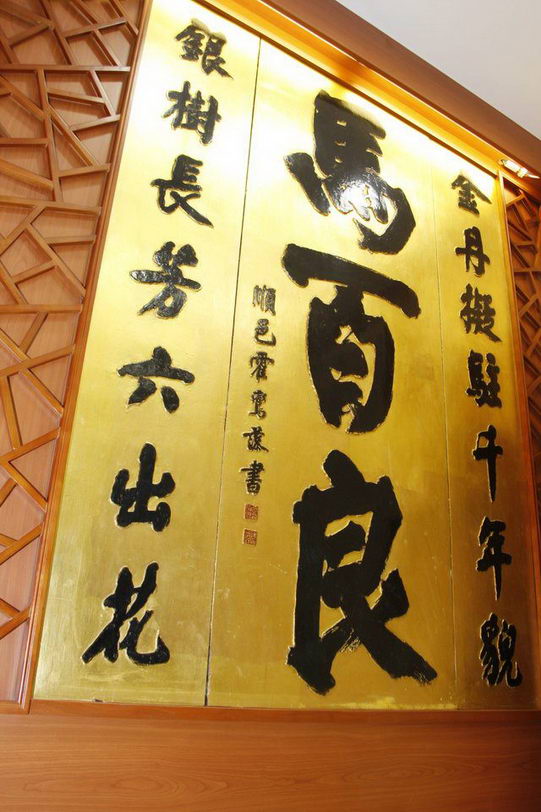 金丹擬駐千年貌
馬百良
順邑霍鸞藻書
銀樹長芳六出花